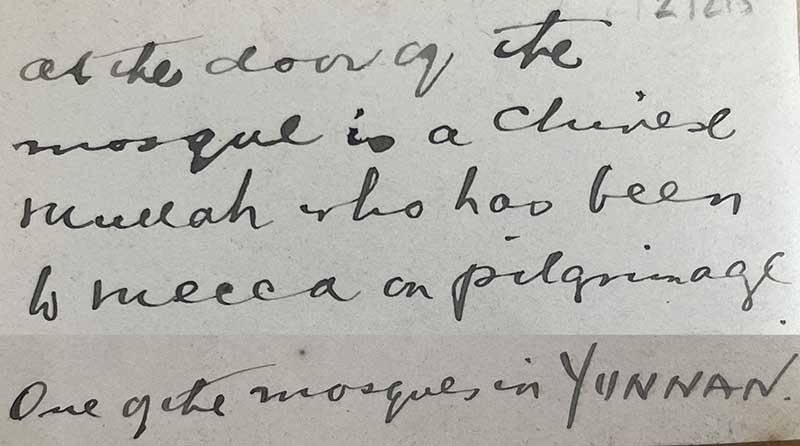 at the door of the
mosque is a Chinese
Mullah who has been
to Mecca on pilgrimage.
One of the mosques in YUNNAN.